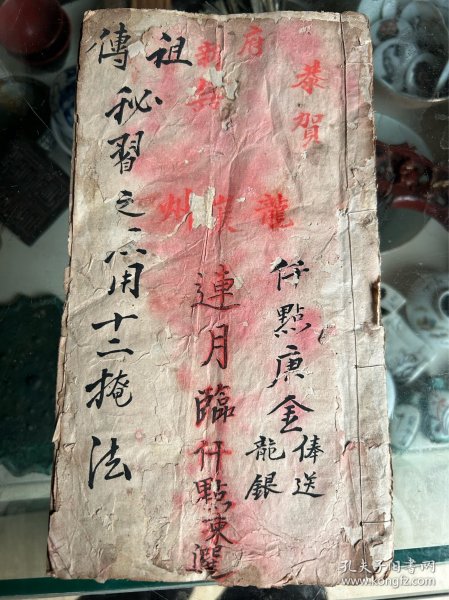 恭賀
府
龍
州
仟點庚金
俸送
龍銀
連月臨仟點東選
祖
傳
秘習之六用十二掩法
孔夫子旧书网
www.kongfz.com